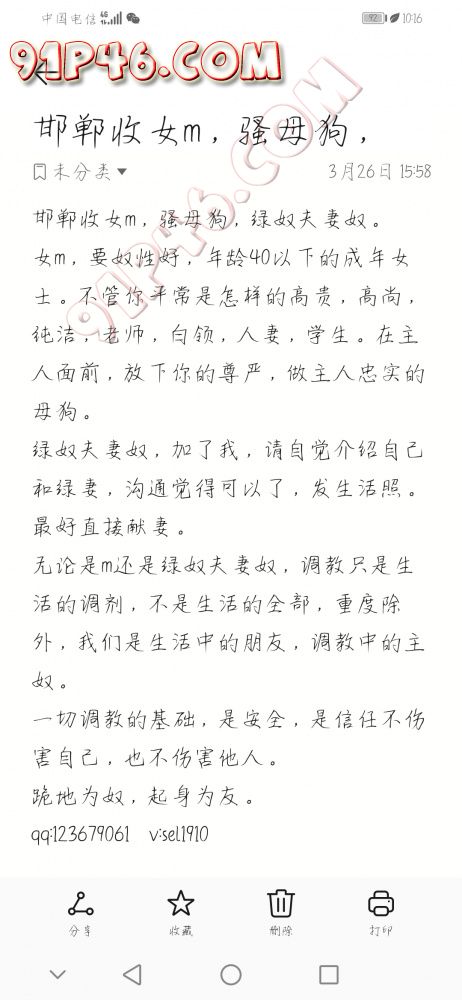 中国电信 4G 92 10:16
91P46.COM
邯郸收女m，骚母狗，
未分类 3月26日 15:58
91P46.COM
邯郸收女m，骚母狗，绿奴夫妻奴。
女m，要奴性好，年龄40以下的成年女
士。不管你平常是怎样的高贵，高尚，
纯洁，老师，白领，人妻，学生。在主
人面前，放下你的尊严，做主人忠实的
母狗。
绿奴夫妻奴，加了我，请自觉介绍自己
和绿妻，沟通觉得可以了，发生活照。
最好直接献妻。
无论是m还是绿奴夫妻奴，调教只是生
活的调剂，不是生活的全部，重度除
外，我们是生活中的朋友，调教中的主
奴。
一切调教的基础，是安全，是信任不伤
害自己，也不伤害他人。
跪地为奴，起身为友。
qq:123679061 v:sel1910
分享 收藏 删除 打印